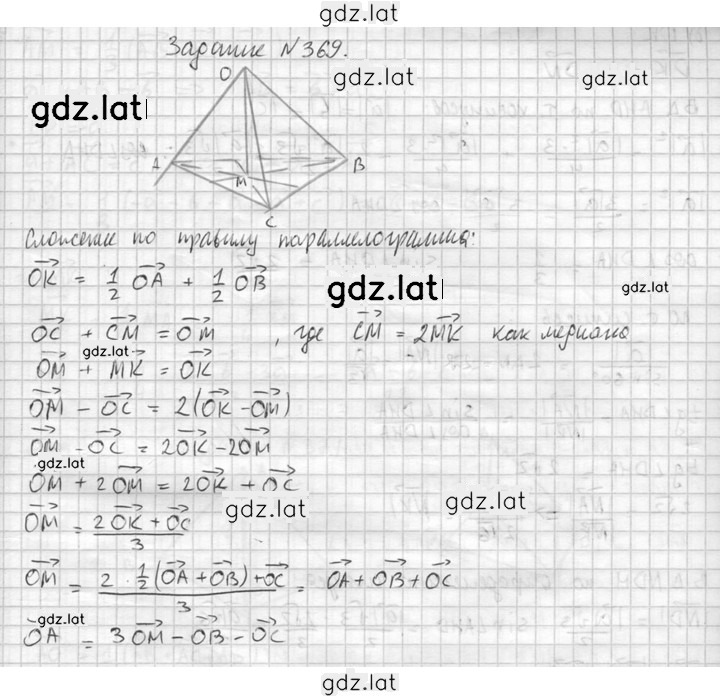 gdz.lat
Задание N369.
O
gdz.lat
gdz.lat
A
B
M
C
Сложение по правилу параллелограмма:
OK = 1/2 OA + 1/2 OB
gdz.lat
gdz.lat
OC + CM = OM , где CM = 2MK как медиана
gdz.lat
OM + MK = OK
OM - OC = 2(OK - OM)
OM - OC = 2OK - 2OM
gdz.lat
OM + 2OM = 2OK + OC
gdz.lat
gdz.lat
OM = (2OK + OC)/3
OM = (2 · 1/2(OA + OB) + OC)/3 = OA + OB + OC
gdz.lat
OA = 3OM - OB - OC
gdz.lat